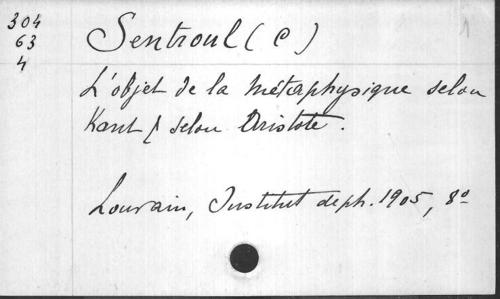 304
63
4
Sentroul (C)
1
L'objet de la métaphysique selon
Kant & selon Aristote.
Louvain, Institut de ph. 1905, 8º